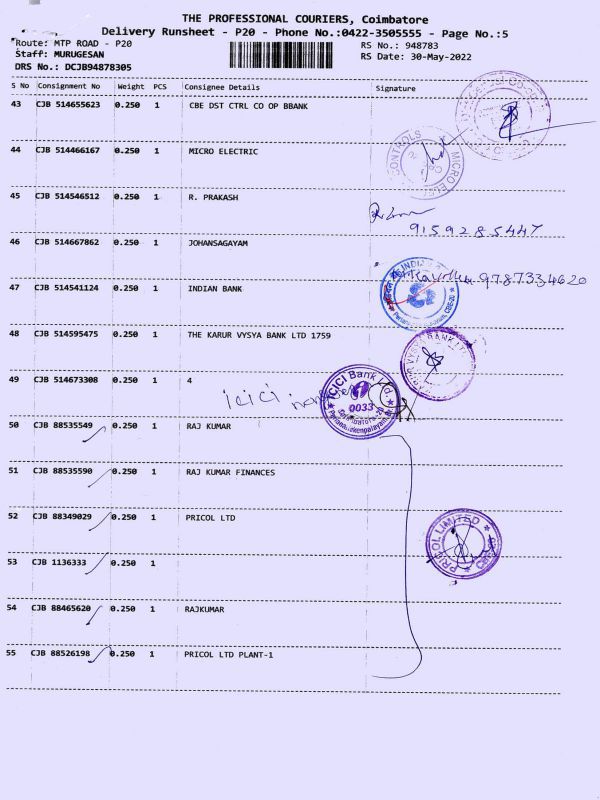 THE PROFESSIONAL COURIERS, Coimbatore
Delivery Runsheet - P20 - Phone No.:0422-3505555 - Page No.:5
Route: MTP ROAD - P20
RS No.: 948783
Staff: MURUGESAN
RS Date: 30-May-2022
DRS No.: DCJB94878305
S No Consignment No Weight PCS Consignee Details Signature
43 CJB 514655623 0.250 1 CBE DST CTRL CO OP BBANK
44 CJB 514466167 0.250 1 MICRO ELECTRIC
CONTROLS MICRO
45 CJB 514546512 0.250 1 R. PRAKASH
9159285447
46 CJB 514667862 0.250 1 JOHANSAGAYAM
9787334620
47 CJB 514541124 0.250 1 INDIAN BANK
INDIAN
48 CJB 514595475 0.250 1 THE KARUR VYSYA BANK LTD 1759
VYSYA BANK
49 CJB 514673308 0.250 1 4
icici
ICICI Bank Ltd.
0033
50 CJB 88535549 0.250 1 RAJ KUMAR
51 CJB 88535590 0.250 1 RAJ KUMAR FINANCES
52 CJB 88349029 0.250 1 PRICOL LTD
PRICOL LIMITED
53 CJB 1136333 0.250 1
54 CJB 88465620 0.250 1 RAJKUMAR
55 CJB 88526198 0.250 1 PRICOL LTD PLANT-1